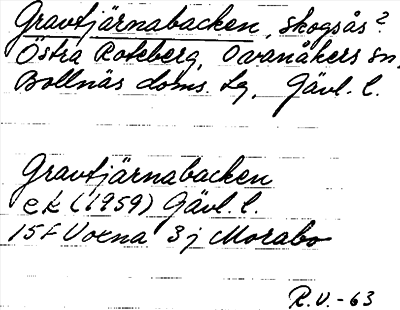 Gravtjärnabacken, skogsås?
Östra Roteberg, Ovanåkers sn,
Bollnäs doms. lg, Gävl. l.
Gravtjärnabacken
ek (1959) Gävl. l.
15F Voxna 3j Morabo
R.V.-63